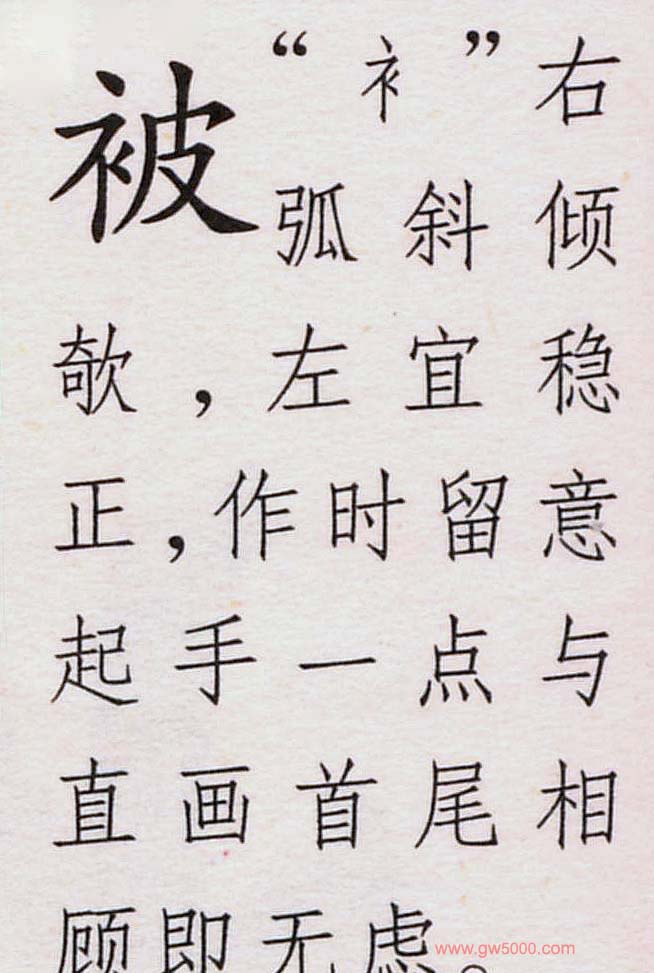 被
“衤”右
弧斜倾
欹,左宜稳
正,作时留意
起手一点与
直画首尾相
顾即无虑。
www.gw5000.com